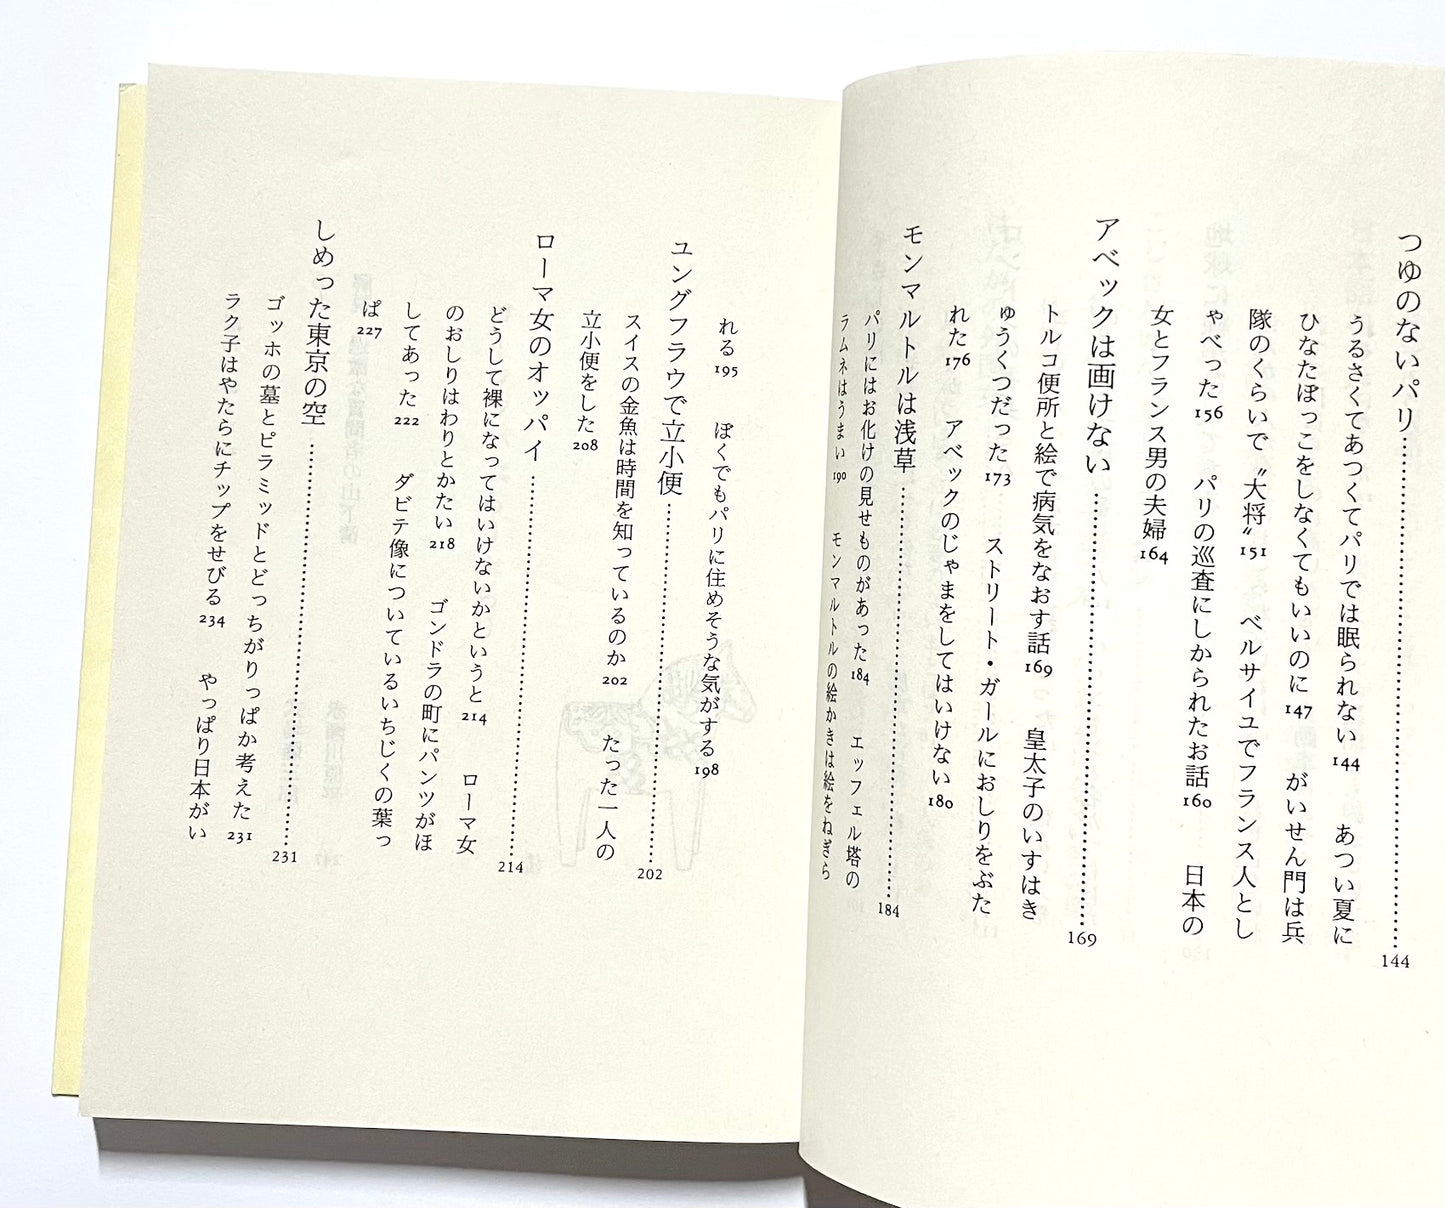 つゆのないパリ……144
うるさくてあつくてパリでは眠られない 144　あつい夏に
ひなたぼっこをしなくてもいいのに 147　がいせん門は兵
隊のくらいで〝大将〟151　ベルサイユでフランス人とし
ゃべった 156　パリの巡査にしかられたお話 160　日本の
女とフランス男の夫婦 164
アベックは画けない……169
トルコ便所と絵で病気をなおす話 169　皇太子のいすはき
ゅうくつだった 173　ストリート・ガールにおしりをぶた
れた 176　アベックのじゃまをしてはいけない 180
モンマルトルは浅草……184
パリにはお化けの見せものがあった 184　エッフェル塔の
ラムネはうまい 190　モンマルトルの絵かきは絵をねぎら
れる 195　ぼくでもパリに住めそうな気がする 198
ユングフラウで立小便……202
スイスの金魚は時間を知っているのか 202　たった一人の
立小便をした 208
ローマ女のオッパイ……214
どうして裸になってはいけないかというと 214　ローマ女
のおしりはわりとかたい 218　ゴンドラの町にパンツがほ
してあった 222　ダビテ像についているいちじくの葉っ
ぱ 227
しめった東京の空……231
ゴッホの墓とピラミッドとどっちがりっぱか考えた 231
ラク子はやたらにチップをせびる 234　やっぱり日本がい